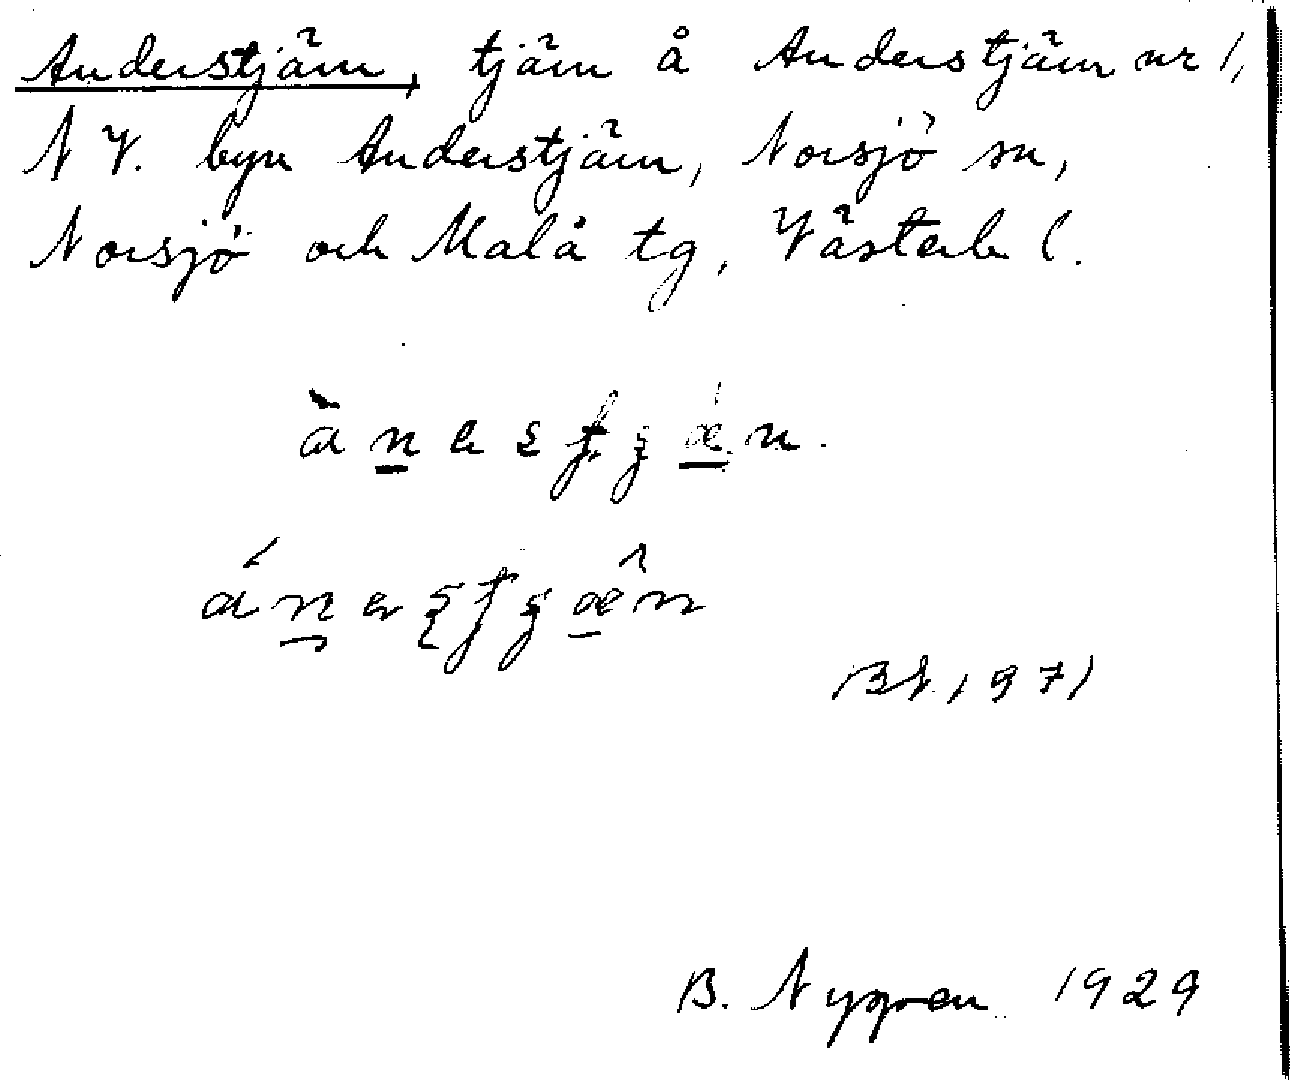 Anderstjärn, tjärn å Anderstjärn nr 1,
NV. byn Anderstjärn, Norsjö sn,
Norsjö och Malå tg, Västerb l.
1971
B. Nygren 1929